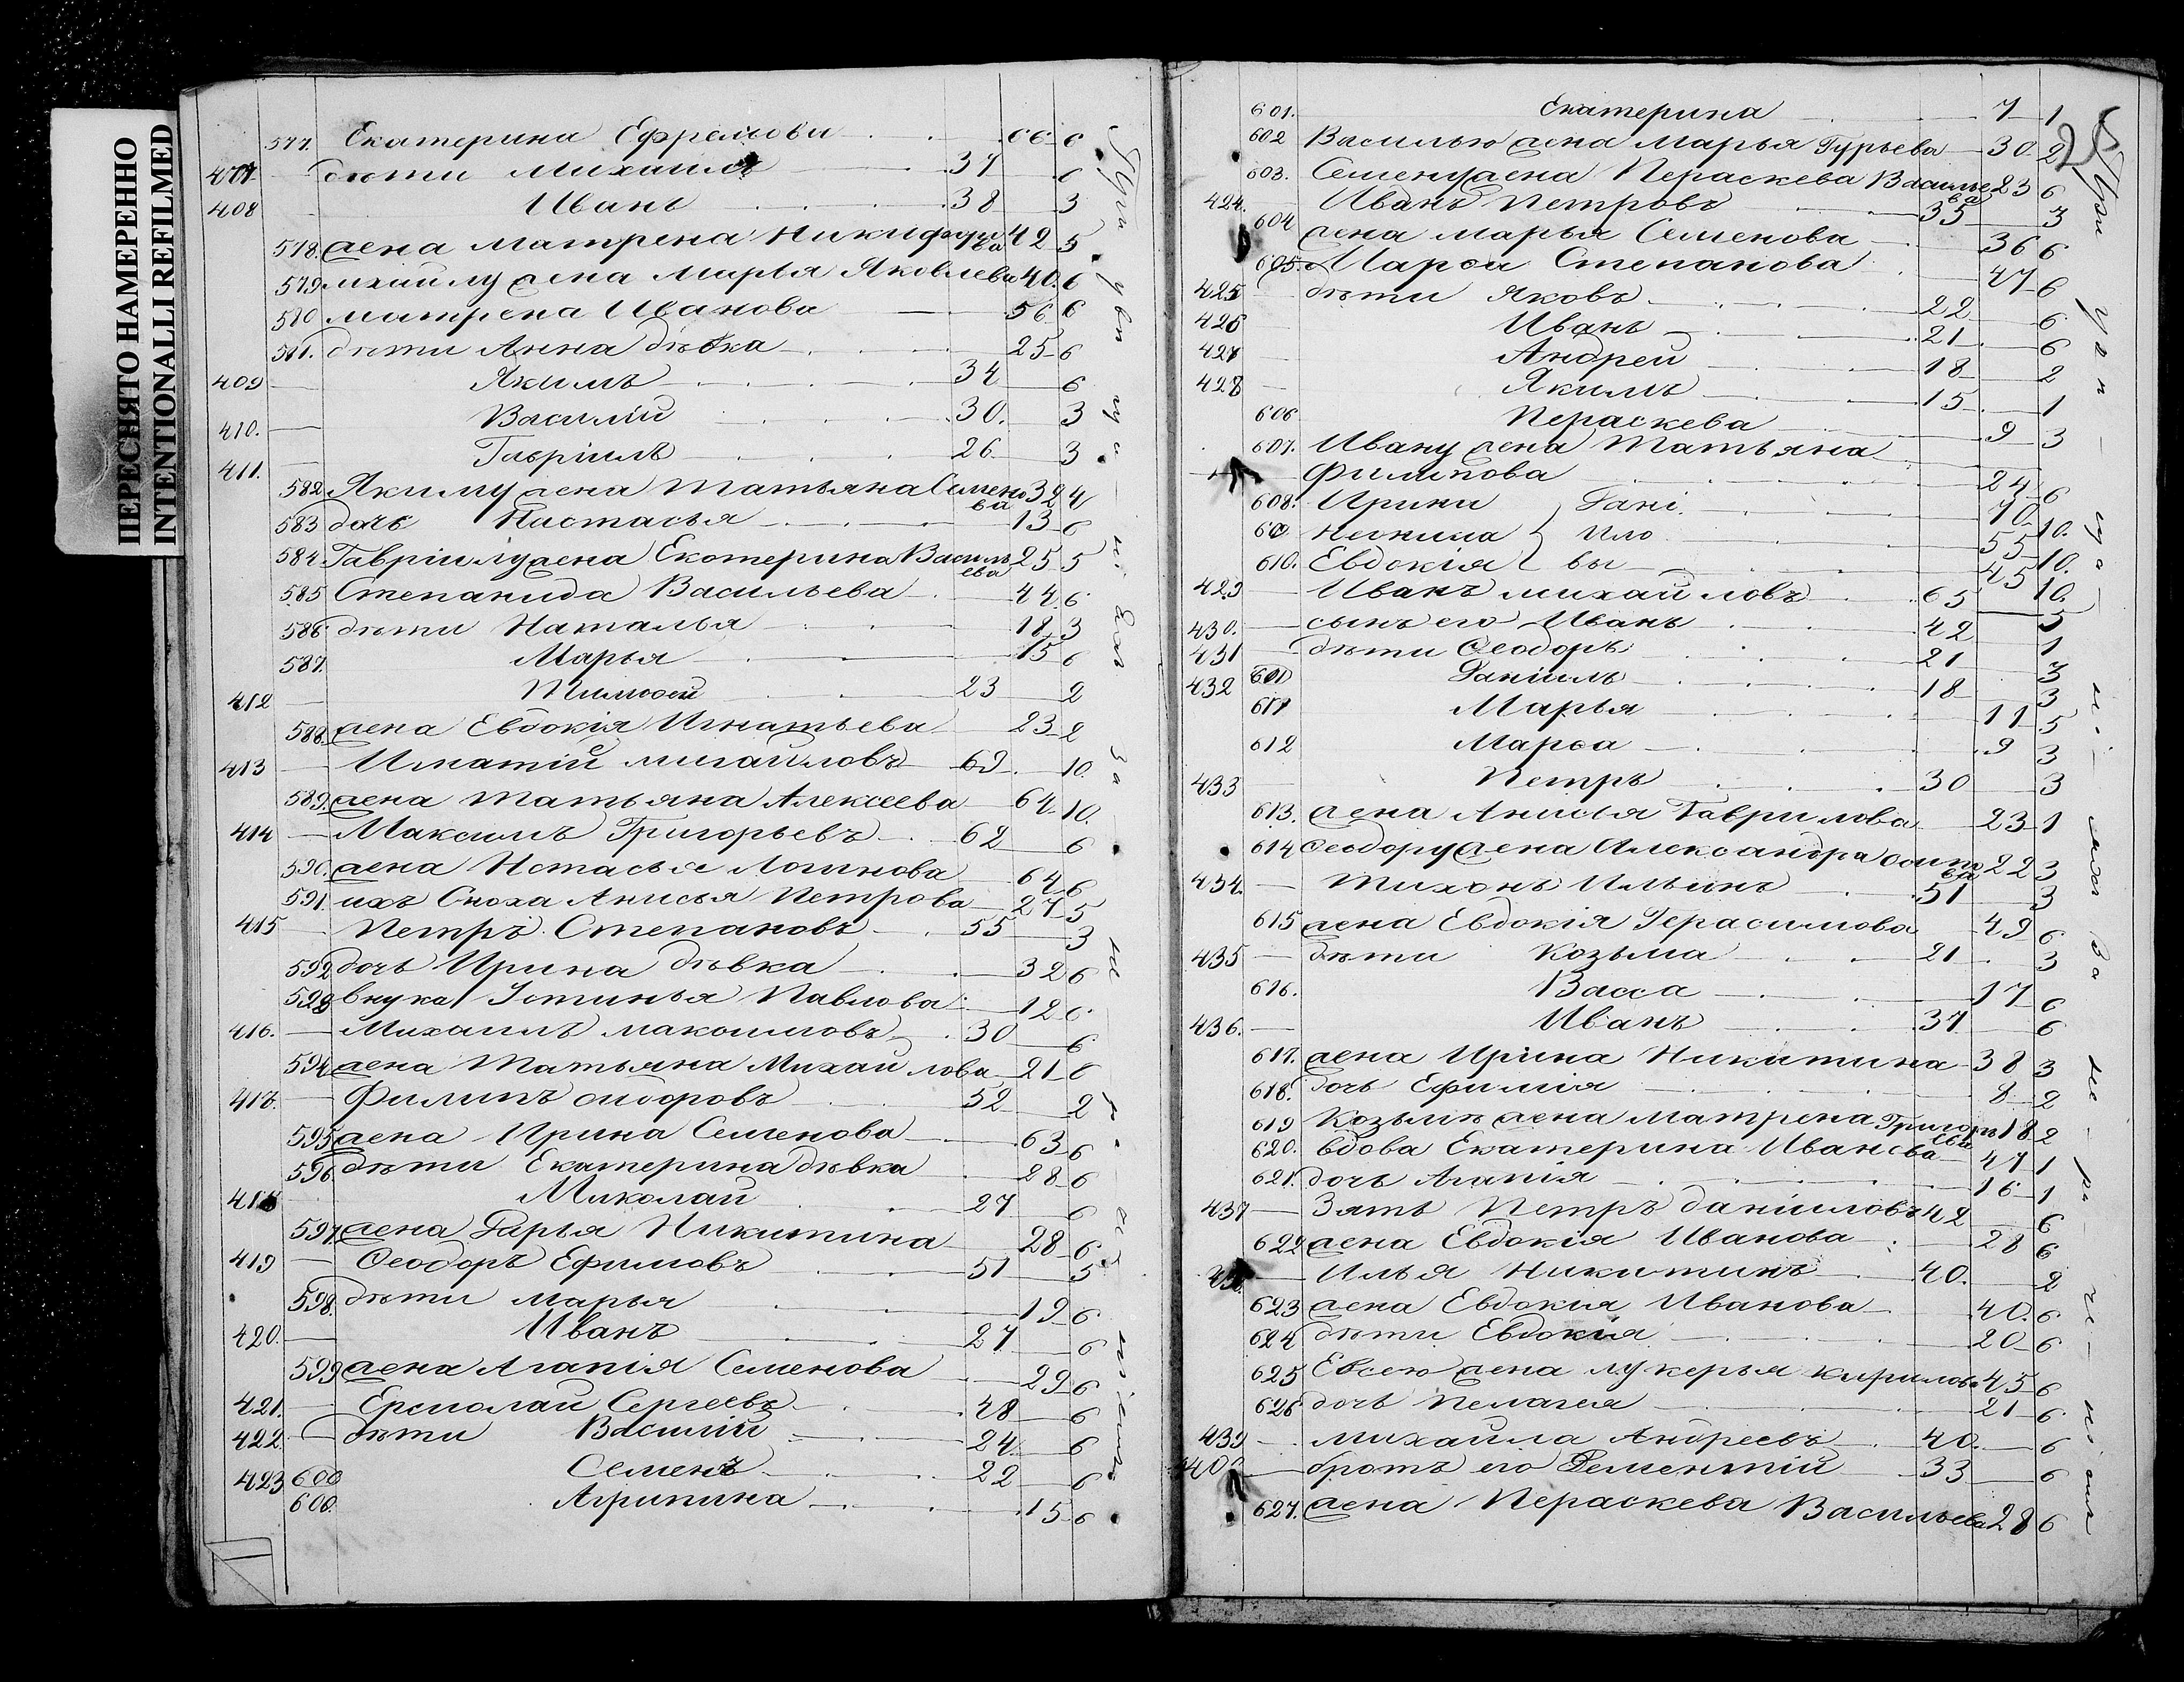 ПЕРЕСНЯТО НАМЕРЕННО
INTENTIONALLI REFILMED
577. Екатерина Ефремова 66 6
407 дѣти Михаилъ 37 6
408 Иванъ 38 3
578. жена Матрена Никифорова 42 5
579 михайлу жена Марья Яковлева 40. 6
580 матрена Иванова 56 6
581. дѣти Анна дѣвка 25 6
409 Якимъ 34 6
410. Василій 30. 3
411. Гавріилъ 26 3
582 Якиму жена Татьяна Семенова 32 4
583 дочь Настасья 13 6
584 Гавріилу жена Екатерина Васильева 25 5
585 Степанида Васильева 44 6
586 дѣти Наталья 18 3
587. Марья 15 6
412 Тимоѳей 23 2
588. жена Евдокія Игнатьева 23 2
413 Игнатій михайловъ 69. 10.
589. жена Татьяна Алексеева 64 10.
414 Максимъ Григорьевъ 62 6
590. жена Нстасья Логинова 64 6
591. ихъ Сноха Анисья Петрова 27 5
415 Петръ Степановъ 55 3
592 дочь Ирина дѣвка 32 6
593 внука Устинья Павлова 12 6
416. Михаилъ максимовъ 30 6
594 жена Татьяна Михайлова 21 6
417. Филипъ сидоровъ 52 2
595 жена Ирина Семенова 63 6
596 дѣти Екатерина дѣвка 28 6
418 Миколай 27 6
597 жена Дарья Никитина 28 6
419 Ѳеодоръ Ефимовъ 51 5
598. дѣти марья 19 6
420. Иванъ 27 6
599 жена Агапія Семенова 29 6
421. Ермолай Сергеевъ 48 6
422. дѣти Василій 24 6
423 600 Семенъ 22 6
600. Агрипина 15 6
601. Екатерина 7 1
602 Василью жена Марья Гурьева 30 2
603. Семену жена Пераскева Васильева 23 6
424. Иванъ Петровъ 35 3
604 жена марья Семенова 36 6
605. Марѳа Степанова 47 6
425 дѣти Яковъ 22 6
426 Иванъ 21 6
427 Андрей 18 2
428 Якимъ 15 1
606 Пераскева 9 3
607. Ивану жена Татьяна
Филипова 24 6
608. Ирина Дані 70 10.
609 Неонила ило 55 10.
610. Евдокія вы 45 10.
429 Иванъ михайловъ 65 5
430. сынъ его Иванъ 42 1
431 дѣти Ѳеодоръ 21 3
432 Даніилъ 18 3
611 Марья 11 5
612 Марѳа 9 3
433 Петръ 30 3
613. жена Анисья Гаврилова 23 1
614 Ѳеодору жена Александра 22 3
434. Тихонъ Ильинъ 51 3
615 жена Евдокія Герасимова 49 6
435 дѣти Козьма 21 3
616. Васса 17 6
436. Иванъ 37 6
617. жена Ирина Никитина 38 3
618. дочь Ефимія 8 2
619 Козьмѣ жена матрена Григорьева 18 2
620. вдова Екатерина Иванова 47 1
621. дочь Агапія 16 1
437 Зять Петръ даниловъ 42 6
622 жена Евдокія Иванова 28 6
Илья Никитинъ 40. 2
623 жена Евдокия Иванова 40. 6
624 дѣти Евдокія 20 6
625 Евсею жена лукерья кирилова 45 6
626 дочь Пелагея 21 6
439 михайла Андреевъ 40. 6
440. братъ его Дементій 33 6
627. жена Пераскева Васильева 28 6